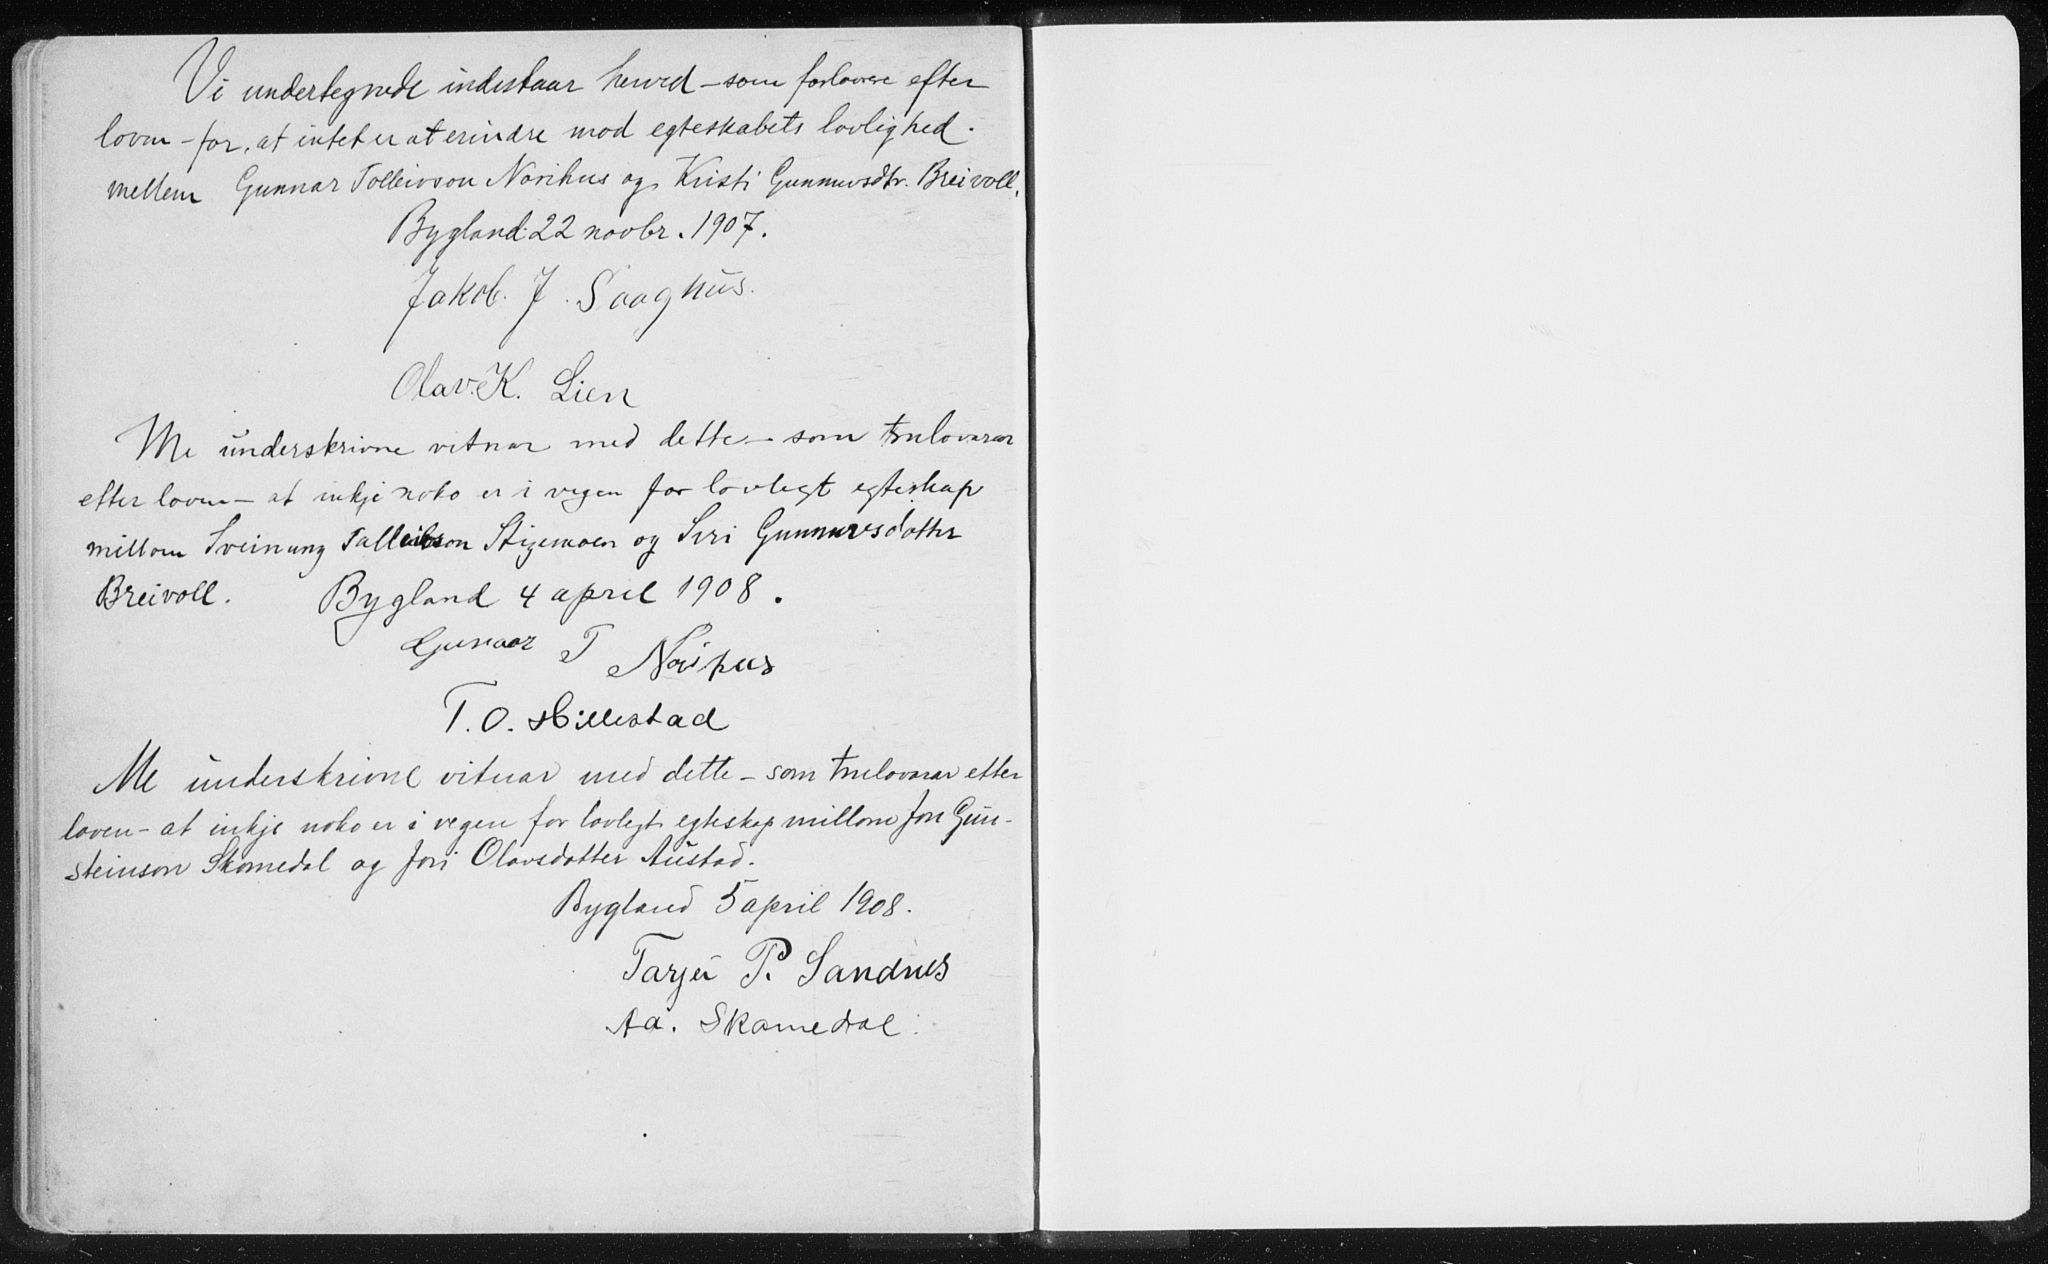 Vi undertegnede indestaar herved – som forlovere efter
loven – for, at intet er at erindre mod egteskabets lovlighed.
mellem Gunnar Tolleivson Norihus og Kristi Gunnuvsdtr. Breivoll.
Bygland 22 novbr. 1907.
Jakob. J. Saaghus.
Olav. K. Lien
Me underskrivne vitnar med dette – som trulovarar
etter loven – at inkje noko er i vegen for lovlegt egteskap
millom Sveinung Talleivson Stigemoen og Siri Gunnuvsdotter
Breivoll. Bygland 4 april 1908.
Gunnar T Norihus
T. O. Hillestad
Me underskrivne vitnar med dette – som trulovarar etter
loven – at inkje noko er i vegen for lovlegt egteskap millom Jon Gun-
steinson Skomedal og Jori Olavsdotter Austad.
Bygland 5 april 1908.
Tarjei P. Sandnes
Aa. Skomedal.